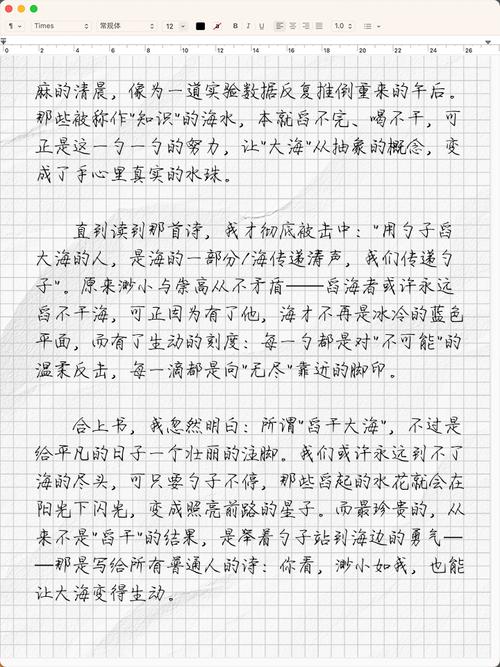 Times 常规体 12 B I U 1.0
0 2 4 6 8 10 12 14 16 18 20 22 24 26
麻的清晨，像为一道实验数据反复推倒重来的午后。
那些被称作"知识"的海水，本就舀不完、喝不干，可
正是这一勺一勺的努力，让"大海"从抽象的概念，变
成了手心里真实的水珠。
直到读到那首诗，我才彻底被击中："用勺子舀
大海的人，是海的一部分/海传递涛声，我们传递勺
子"。原来渺小与崇高从不矛盾——舀海者或许永远
舀不干海，可正因为有了他，海才不再是冰冷的蓝色
平面，而有了生动的刻度：每一勺都是对"不可能"的
温柔反击，每一滴都是向"无尽"靠近的脚印。
合上书，我忽然明白：所谓"舀干大海"，不过是
给平凡的日子一个壮丽的注脚。我们或许永远到不了
海的尽头，可只要勺子不停，那些舀起的水花就会在
阳光下闪光，变成照亮前路的星子。而最珍贵的，从
来不是"舀干"的结果，是举着勺子站到海边的勇气—
—那是写给所有普通人的诗：你看，渺小如我，也能
让大海变得生动。